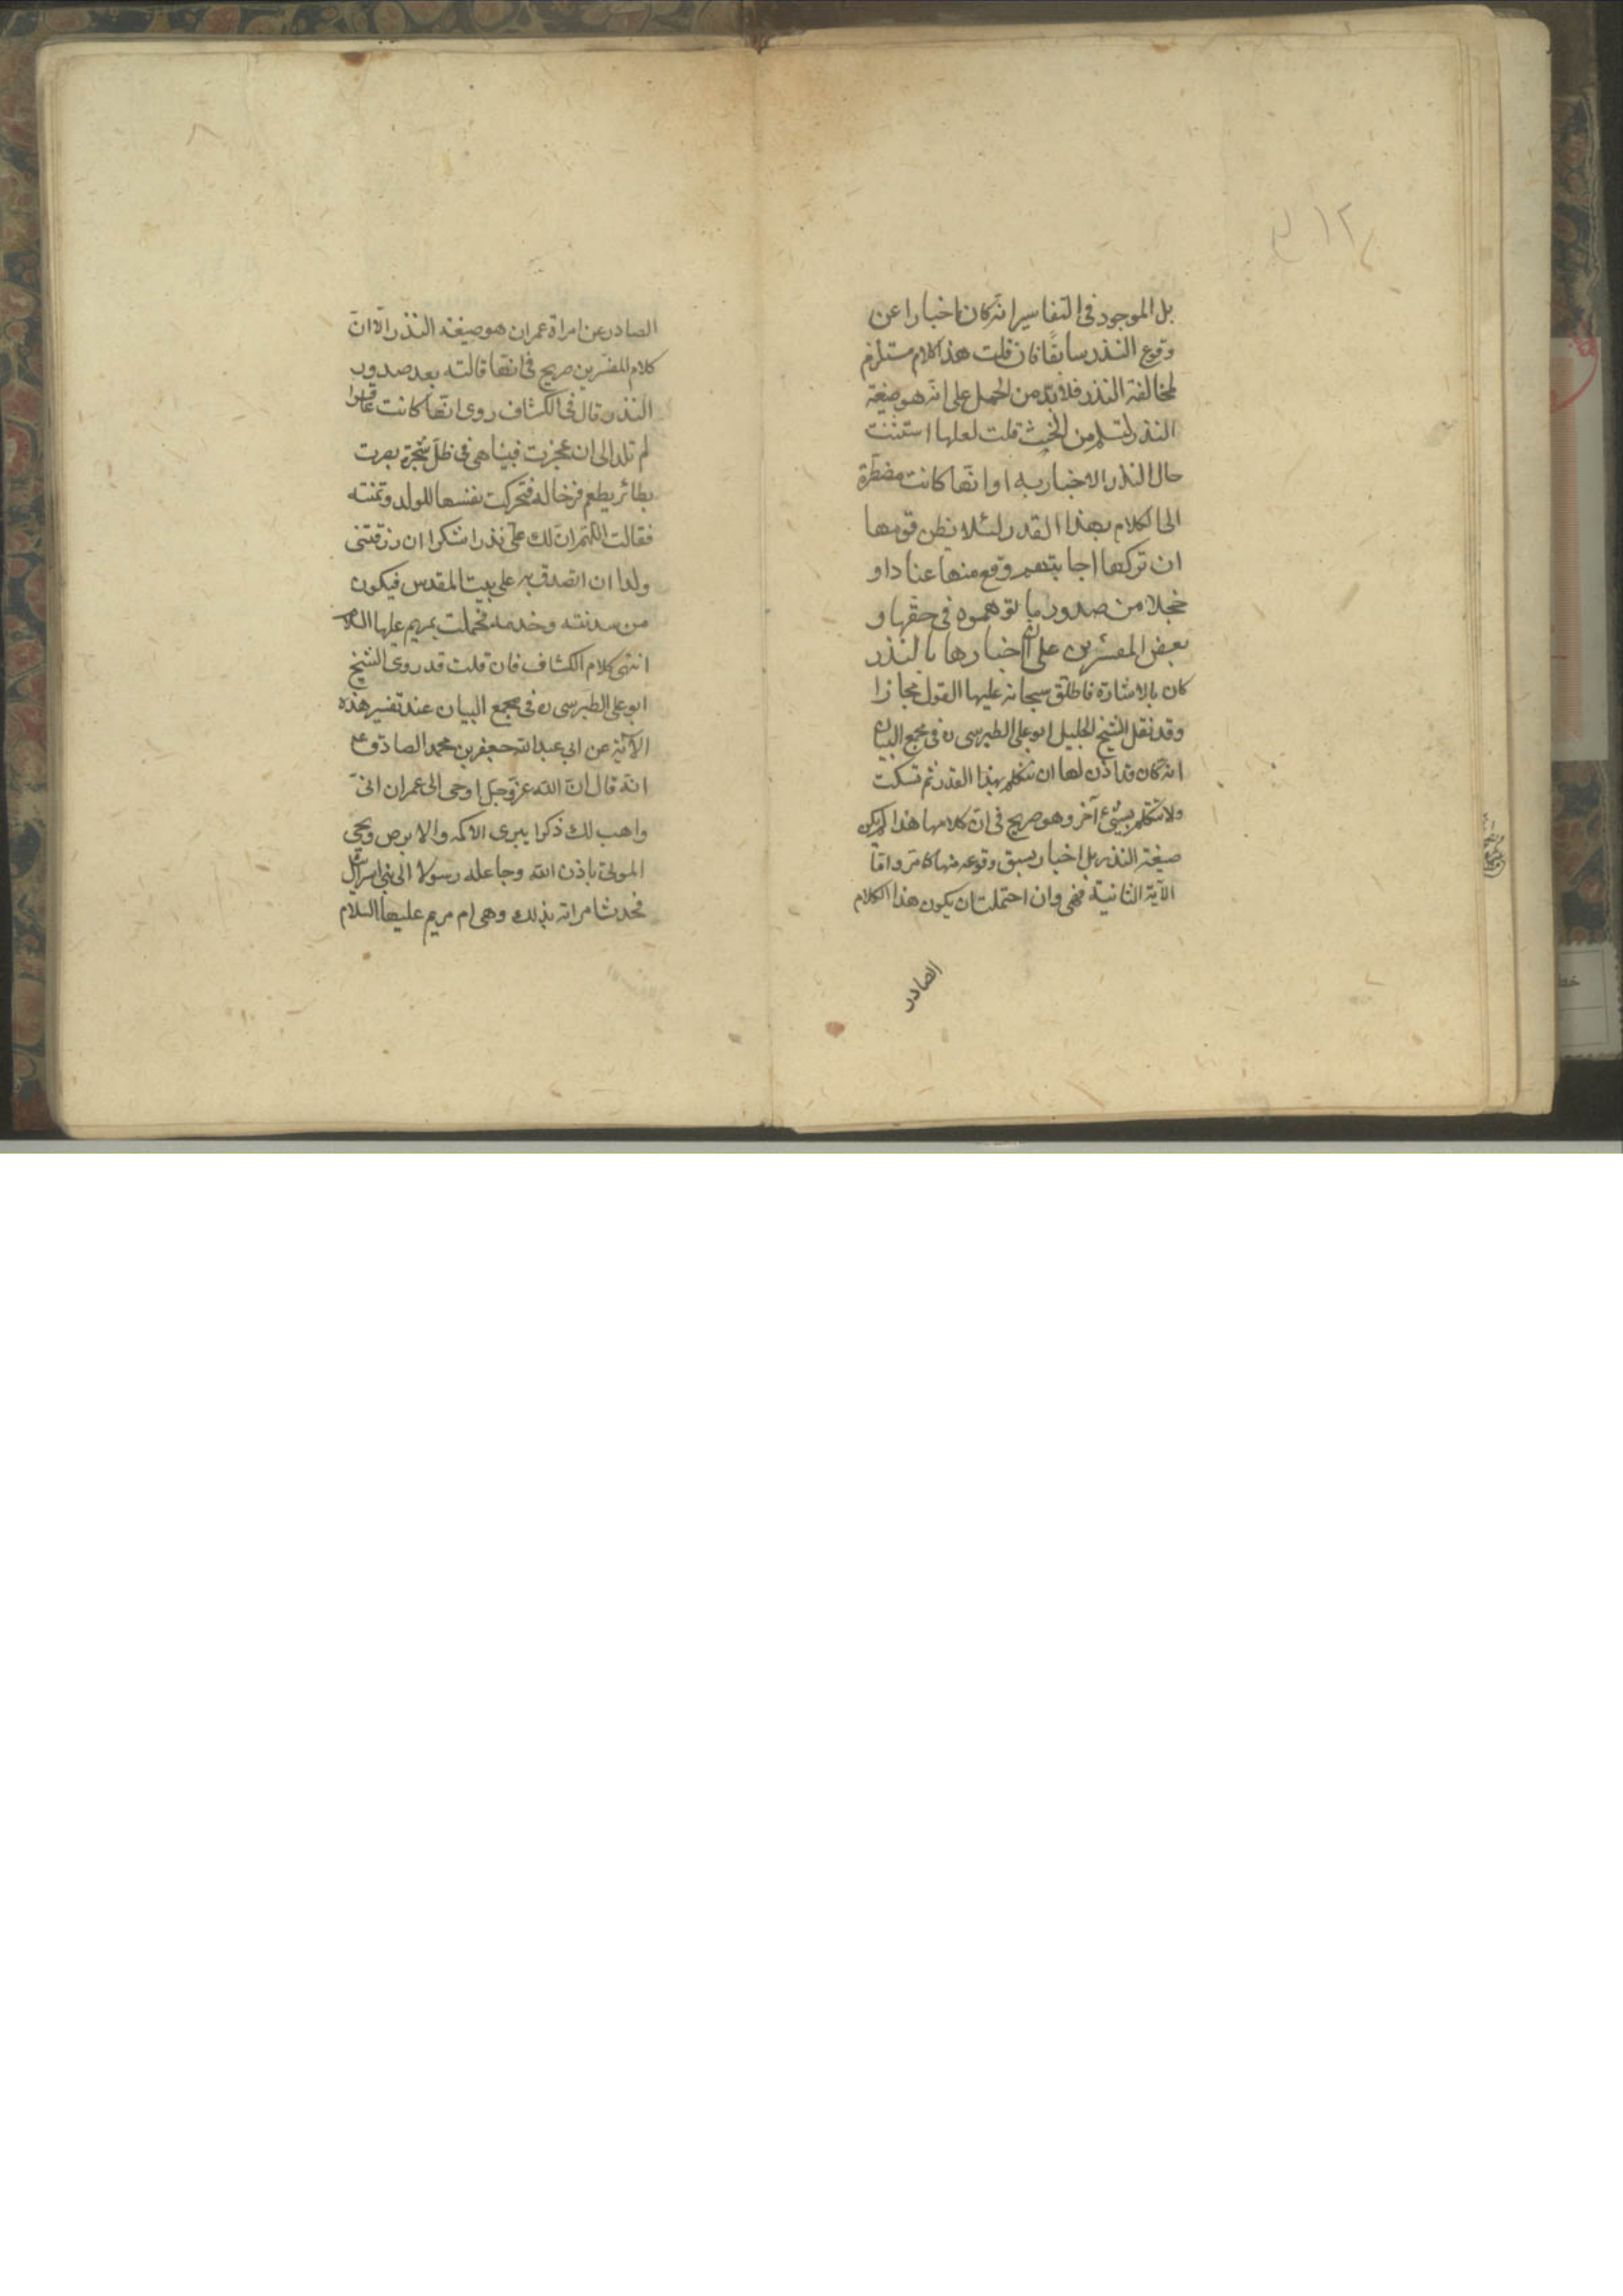 بل الموجود في التفاسير انه كان اخبارا عن
وقوع النذر سابقا فان قلت هذا كلام مستلزم
لمخالفة النذر فلا بدّ من الحمل على انه هو صيغة
النذر لتسلم من الخبث قلت لعلها استثنت
حال النذر الاخبار به او انها كانت مضطرة
الى الكلام بهذا القدر لئلا يظن قومها
ان تركها اجابتهم وقع منها عنادا و
خجلا من صدور ما توهموه في حقها و
بعض المفسرين على ان اخبارها بالنذر
كان بالاشارة فاطلق سبحانه عليها القول مجازا
وقد نقل الشيخ الجليل ابو علي الطبرسي ره في مجمع البيان
انه كان قد اذن لها ان تتكلم بهذا القدر ثم تسكت
ولا تتكلم بشيئ آخر وهو صريح في ان كلامها هذا لم يكن
صيغة النذر بل اخبار بسبق وقوعه منها كما مر واما
الآية الثانية فهي وان احتملت ان يكون هذا الكلام
الصادر
الصادر عن امراة عمران هو صيغة النذر الّا انّ
كلام المفسرين صريح في انها قالته بعد صدور
النذر قال في الكشاف روى انها كانت عاقرا
لم تلد الى ان عجزت فبينا هي في ظل شجرة بصرت
بطائر يطعم فرخا له فتحركت نفسها للولد وتمنته
فقالت اللهم ان لك علي نذرا شكرا ان رزقتني
ولدا ان اتصدق به على بيت المقدس فيكون
من سدنته وخدمه فحملت بمريم عليها السلام
انتهى كلام الكشاف فان قلت قد روى الشيخ
ابو علي الطبرسي ره في مجمع البيان عند تفسير هذه
الآية عن ابي عبد الله جعفر بن محمد الصادق ع
انه قال انّ الله عز وجل اوحى الى عمران انيّ
واهب لك ذكرا يبرى الاكمه والابرص ويحي
الموتى باذن الله وجاعله رسولا الى بني اسرائيل
فحدث امراته بذلك وهي ام مريم عليها السلام